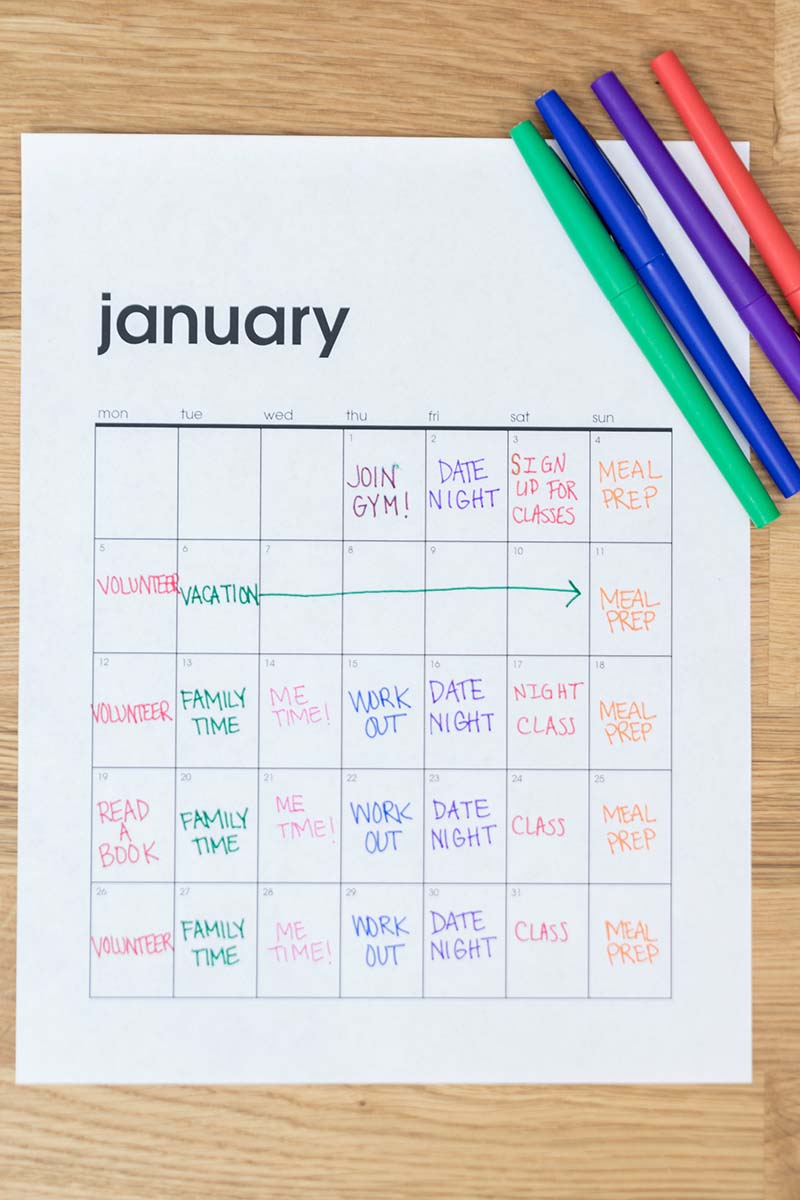 january
mon tue wed thu fri sat sun
1 2 3 4
JOIN GYM! DATE NIGHT SIGN UP FOR CLASSES MEAL PREP
5 6 7 8 9 10 11
VOLUNTEER VACATION MEAL PREP
12 13 14 15 16 17 18
VOLUNTEER FAMILY TIME ME TIME! WORK OUT DATE NIGHT NIGHT CLASS MEAL PREP
19 20 21 22 23 24 25
READ A BOOK FAMILY TIME ME TIME! WORK OUT DATE NIGHT CLASS MEAL PREP
26 27 28 29 30 31
VOLUNTEER FAMILY TIME ME TIME! WORK OUT DATE NIGHT CLASS MEAL PREP